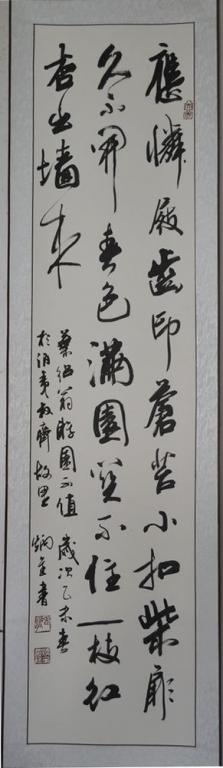 應憐屐齒印蒼苔小扣柴扉
久不開春色滿園關不住一枝紅
杏出墻來
葉紹翁游園不值 歲次乙未春
於伯夷叔齊故里 炳書